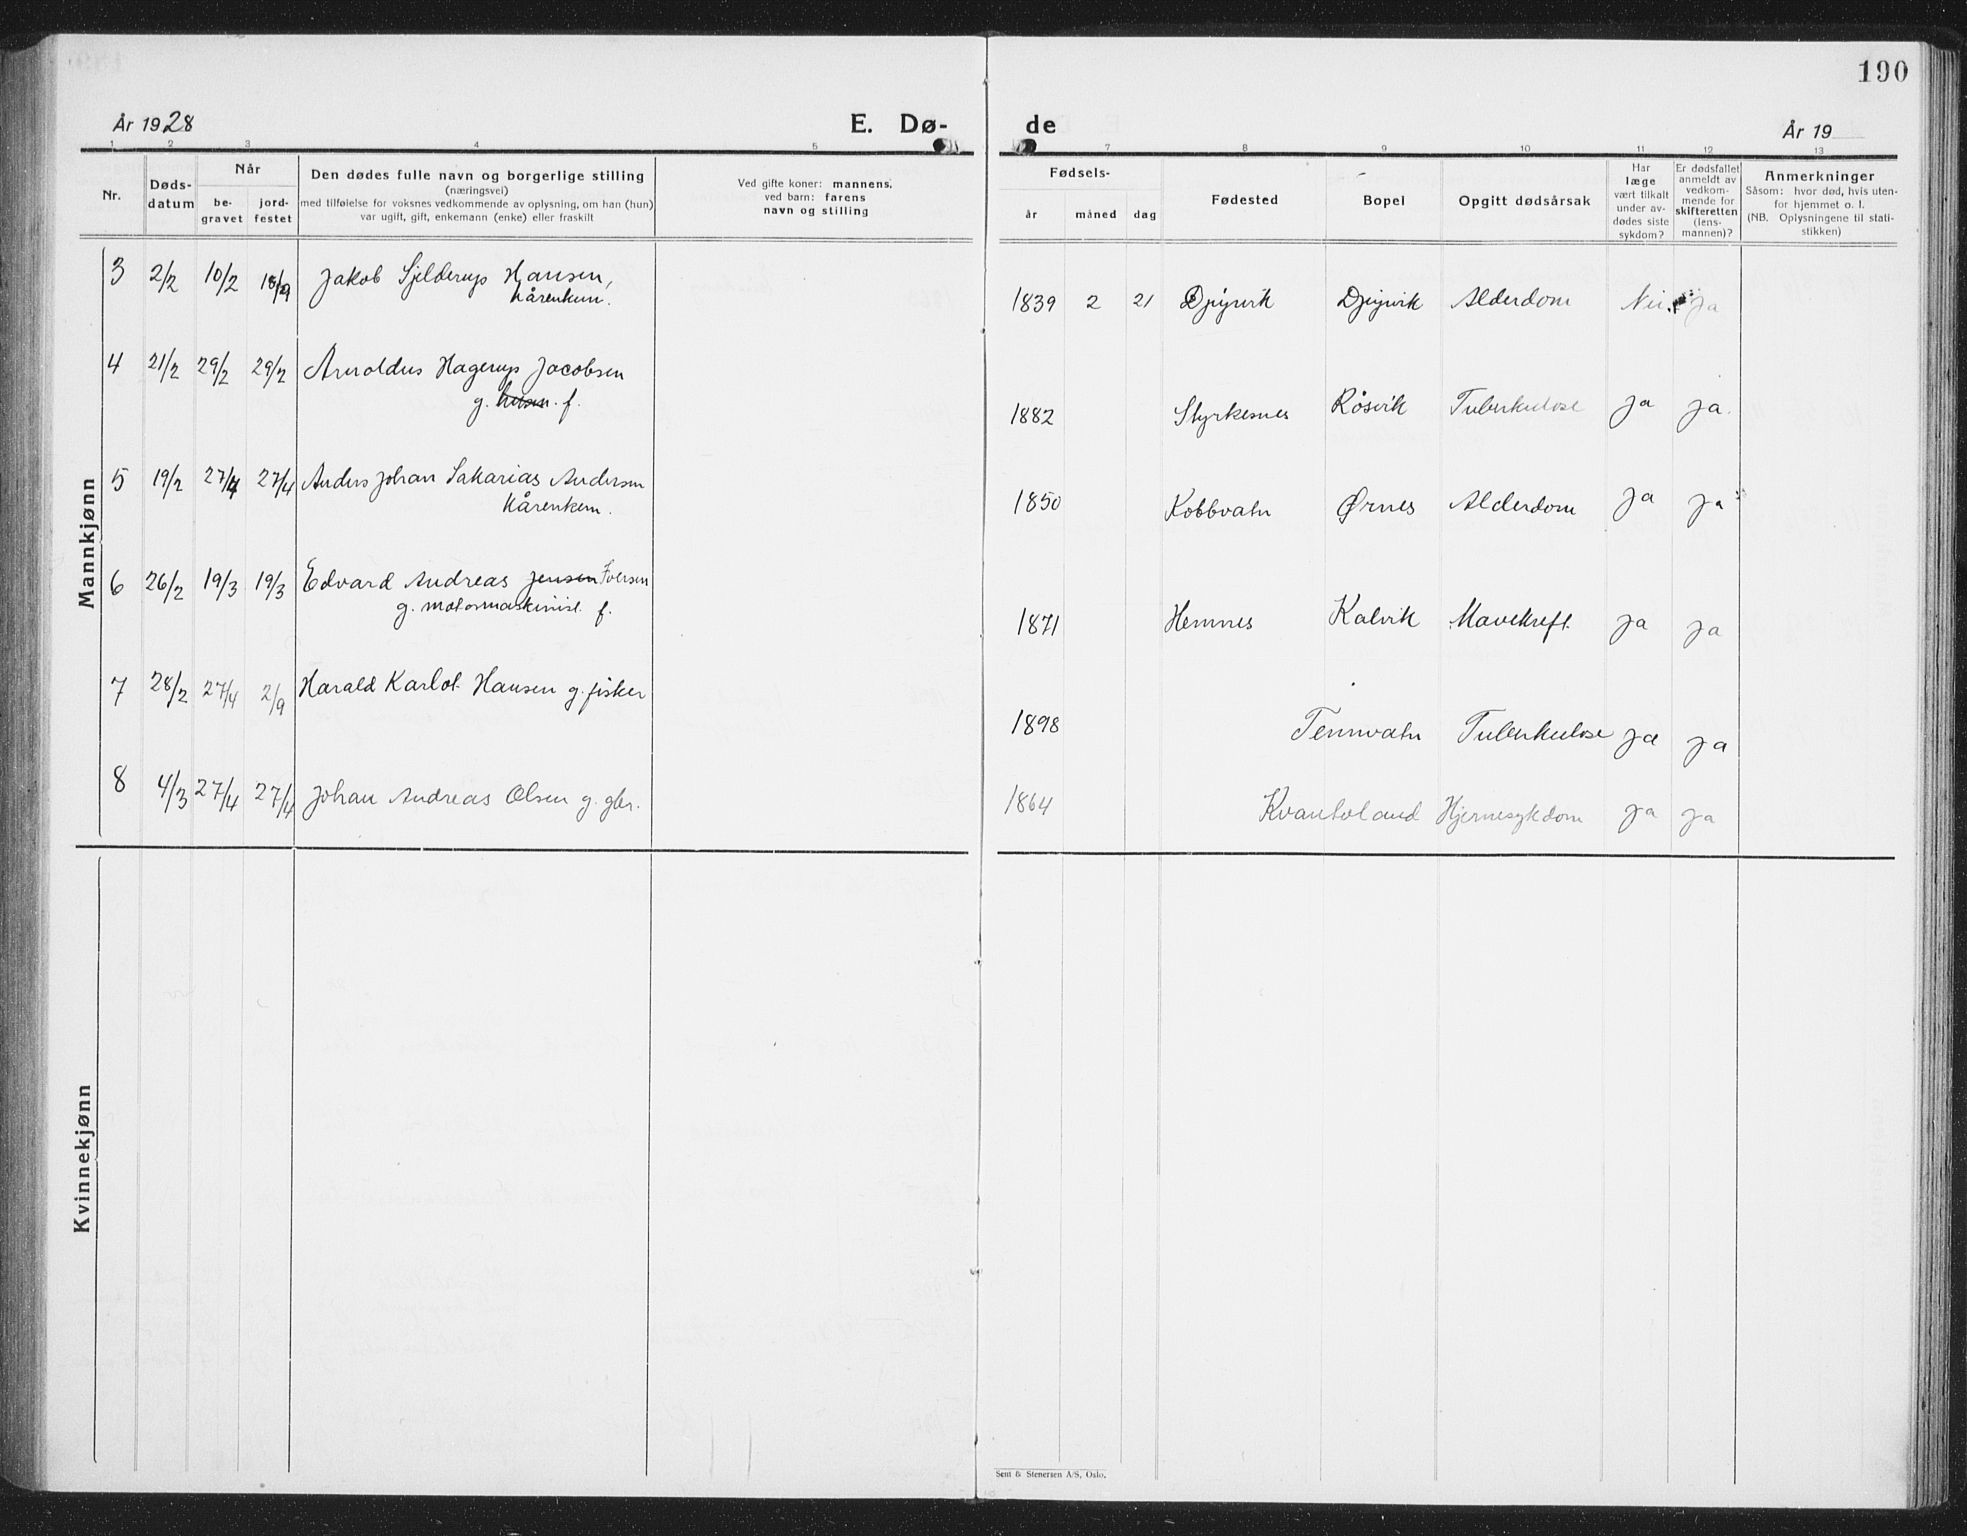 190
År 1928
E. Dø-
de
År 19
1 2 3 4 5 7 8 9 10 11 12 13
Nr.
Døds-
datum
Når
be-
gravet
jord-
festet
Den dødes fulle navn og borgerlige stilling
(næringsvei)
med tilføielse for voksnes vedkommende av oplysning, om han (hun)
var ugift, gift, enkemann (enke) eller fraskilt
Ved gifte koner: mannens,
ved barn: farens
navn og stilling
Fødsels-
år måned dag
Fødested
Bopel
Opgitt dødsårsak
Har
læge
vært tilkalt
under av-
dødes siste
sykdom?
Er dødsfallet
anmeldt av
vedkom-
mende for
skifteretten
(lens-
mannen)?
Anmerkninger
Såsom: hvor død, hvis uten-
for hjemmet o. l.
(NB. Oplysningene til stati-
stikken)
Mannkjønn
3 2/2 10/2 18/9 Jakob Sjelderup Hansen,
kårenkem.
1839 2 21 Djupvik Djupvik Alderdom Nei Ja
4 21/2 29/2 29/2 Arnoldus Hagerup Jacobsen
g. f.
1882 Styrkesnes Røsvik Tuberkulose Ja Ja.
5 19/2 27/4 27/4 Anders Johan Sakarias Andersen
kårenkem.
1850 Kobbvatn Ørnes Alderdom Ja Ja
6 26/2 19/3 19/3 Edvard Andreas Jensen Iversen
g. motormaskinist f.
1871 Hemnes Kalvik Mavekreft Ja Ja
7 28/2 27/4 2/9 Harald Karlot Hansen g. fisker
1898 Tennvatn Tuberkulose Ja Ja
8 4/3 27/4 27/4 Johan Andreas Olsen g. gbr.
1864 Kvantoland Hjernesykdom Ja Ja
Kvinnekjønn
Sent & Stenersen A/S, Oslo.